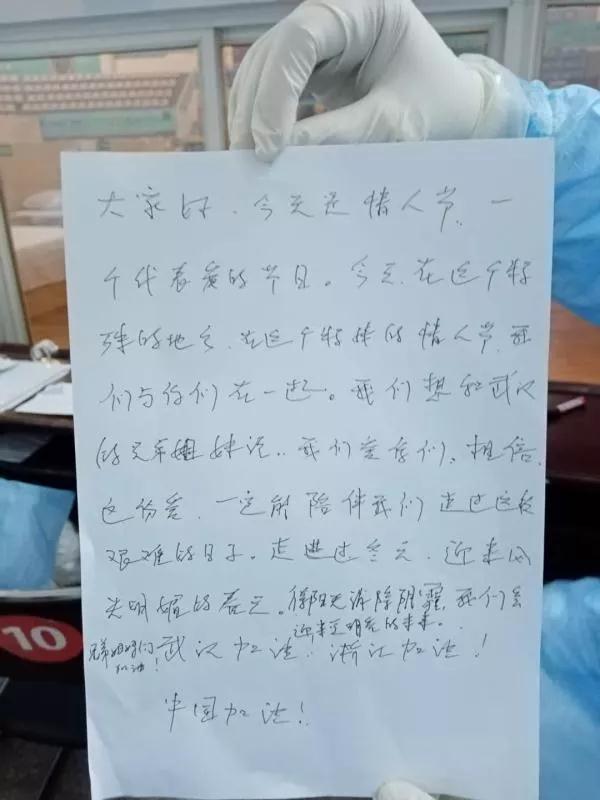 大家好、今天是情人节、一
个代表爱的节日。今天、在这个特
殊的地方、在这个特殊的情人节、我
们与你们在一起。我们想和武汉
的兄弟姐妹说:我们爱你们、相信、
这份爱、一定能陪伴我们走过这段
艰难的日子。走进过冬天、迎来风
光明媚的春天。待阳光消除阴霾、我们会
迎来更明亮的未来。
兄弟姐妹们
加油!
武汉加油!浙江加油!
中国加油!
10